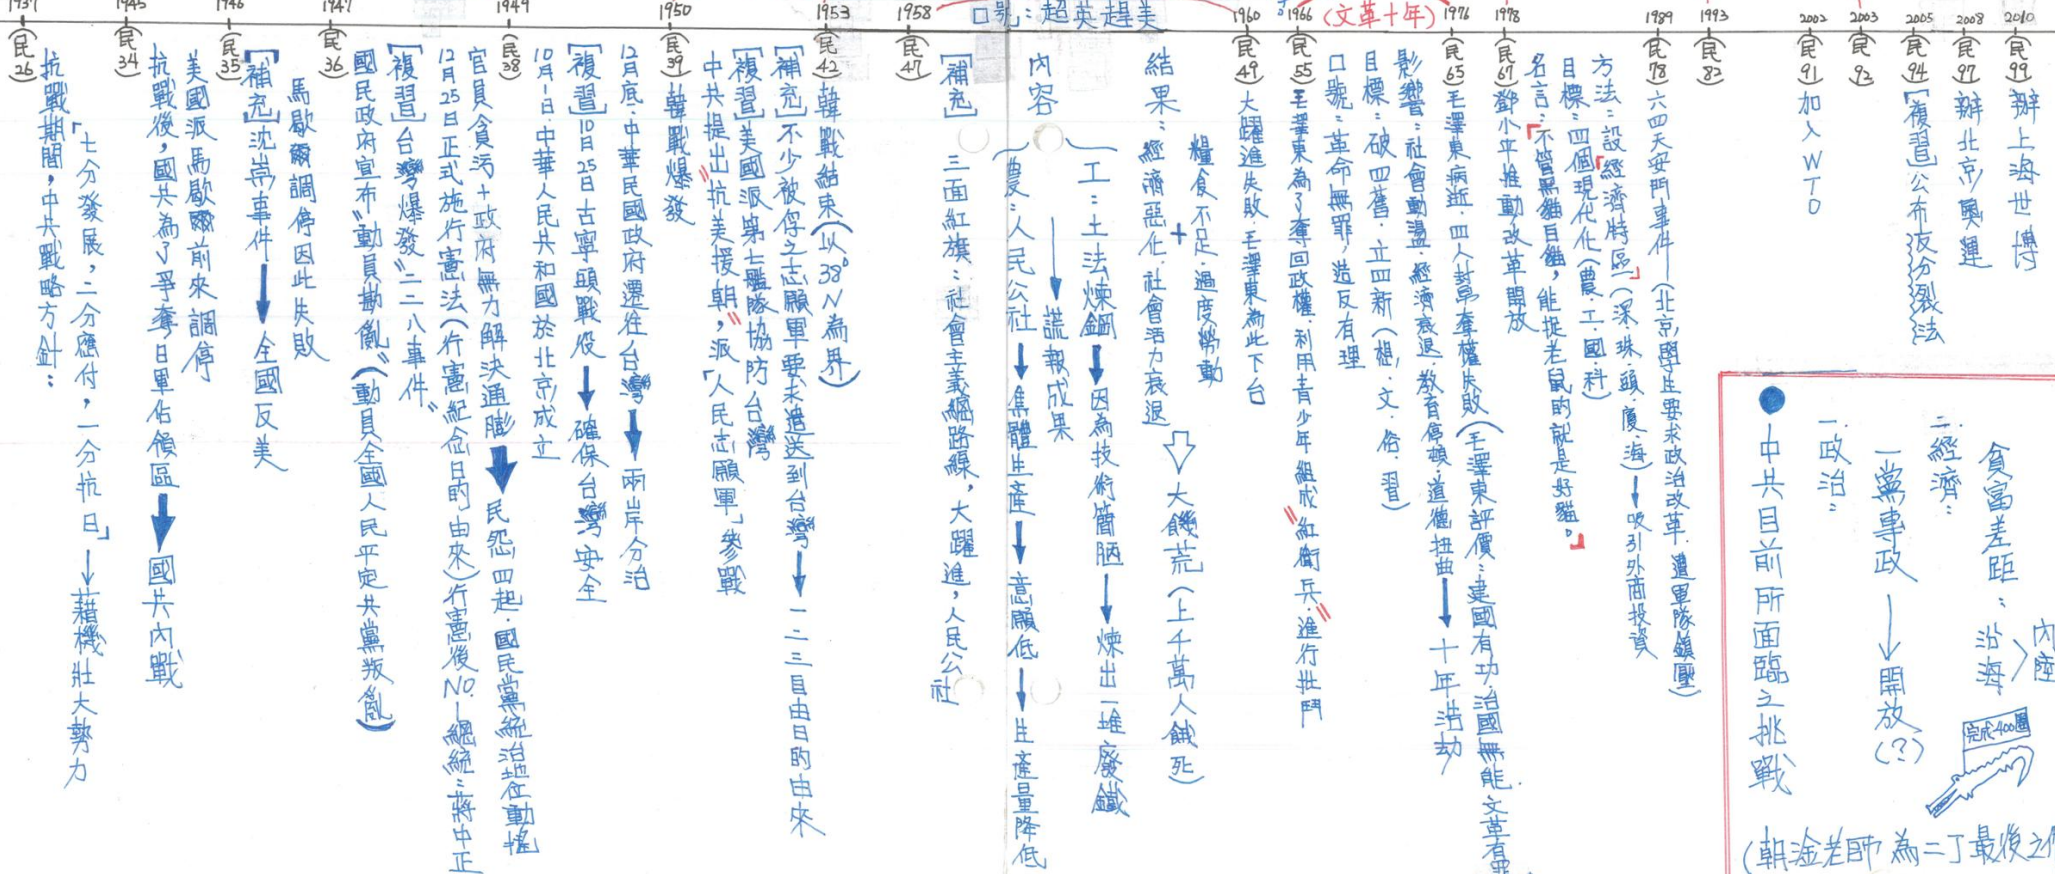 1937
(民26)
抗戰期間，中共戰略方針：
「七分發展，二分應付，一分抗日」→藉機壯大勢力
1945
(民34)
抗戰後，國共為了爭奪日軍佔領區→國共內戰
美國派馬歇爾前來調停
1946
(民35)
[補充]沈崇事件→全國反美
馬歇爾調停因此失敗
1947
(民36)
國民政府宣布"動員勘亂"(動員全國人民平定共黨叛亂)
[複習]台灣爆發"二二八事件"
12月25日正式施行憲法(行憲紀念日的由來)行憲後NO.1總統：蔣中正
官員貪污+政府無力解決通膨→民怨四起．國民黨統治地位動搖
1949
(民38)
10月1日．中華人民共和國於北京成立
[複習]10月25日古寧頭戰役→確保台灣安全
12月底．中華民國政府遷往台灣→兩岸分治
1950
(民39)
韓戰爆發
中共提出"抗美援朝"，派「人民志願軍」參戰
[複習]美國派第七艦隊協防台灣
[補充]不少被俘之志願軍要求遣送到台灣→一二三自由日的由來
1953
(民42)
韓戰結束(以38°N為界)
1958
(民47)
口號：超英趕美
[補充]三面紅旗：社會主義總路線，大躍進，人民公社
內容
農：人民公社→集體生產→意願低→生產量降低
→謊報成果
工：土法煉鋼→因為技術簡陋→煉出一堆廢鐵
結果：經濟惡化．社會活力衰退
+
糧食不足．過度勞動
⇨大饑荒(上千萬人餓死)
1960
(民49)
大躍進失敗．毛澤東為此下台
1966
(文革十年)
(民55)
毛澤東為了奪回政權．利用青少年組成"紅衛兵"進行批鬥
口號：革命無罪，造反有理
目標：破四舊．立四新(想．文．俗．習)
影響：社會動盪．經濟衰退．教育停頓．道德扭曲→十年浩劫
1976
(民65)
毛澤東病逝．四人幫奪權失敗(毛澤東評價：建國有功．治國無能．文革有罪
1978
(民67)
鄧小平推動改革開放
名言：「不管黑貓白貓，能捉老鼠的就是好貓。」
目標：四個現代化(農．工．國．科)
方法：設「經濟特區」(深．珠．頭．廈．海)→吸引外商投資
1989
(民78)
六四天安門事件→(北京學生要求政治改革．遭軍隊鎮壓)
1993
(民82)
2002
(民91)
加入WTO
2003
(民92)
2005
(民94)
[複習]公布反分裂法
2008
(民97)
辦北京奧運
2010
(民99)
辦上海世博
●中共目前所面臨之挑戰
一.政治：
一黨專政→開放(?)
二.經濟：
貧富差距：沿海>內陸
完成400圈
(朝淦老師為二丁最後之